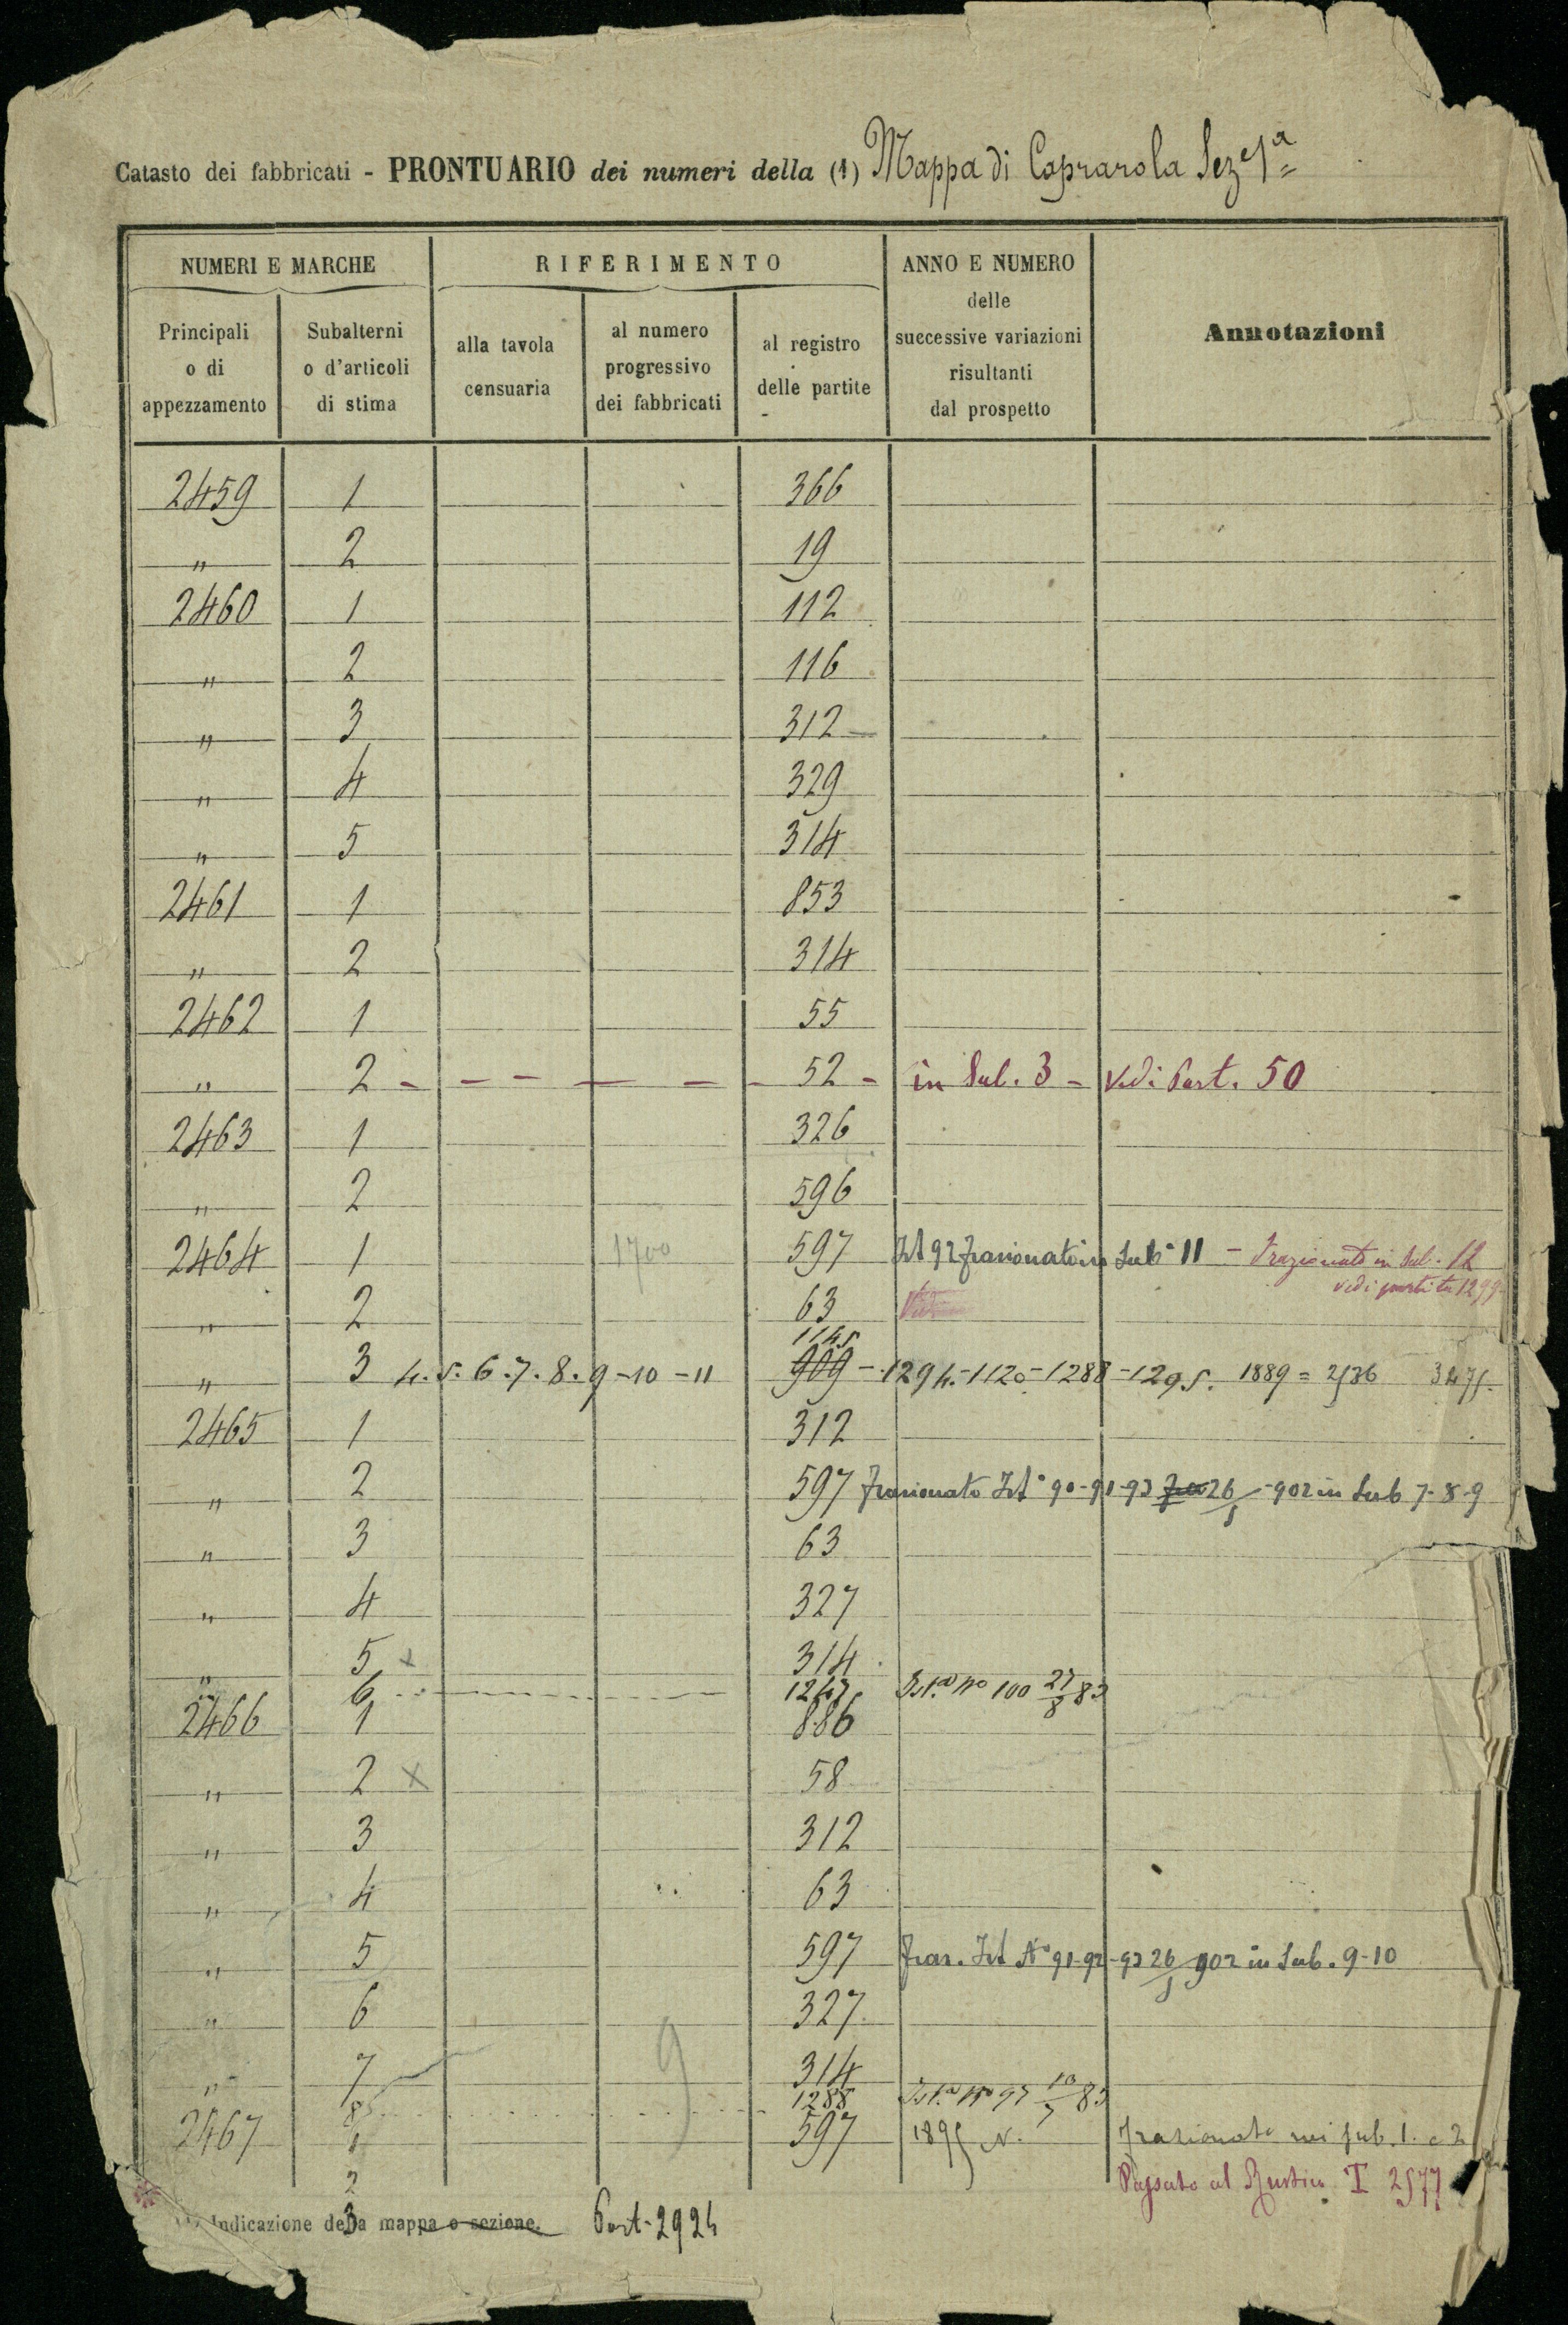 Catasto dei fabbricati - PRONTUARIO dei numeri della (1) Mappa di Caprarola Sez 1ª
NUMERI E MARCHE RIFERIMENTO ANNO E NUMERO
delle
successive variazioni
risultanti
dal prospetto
Annotazioni
Principali
o di
appezzamento
Subalterni
o d'articoli
di stima
alla tavola
censuaria
al numero
progressivo
dei fabbricati
al registro
delle partite
2459 1 366
" 2 19
2460 1 112
" 2 116
" 3 312
" 4 329
" 5 314
2461 1 853
" 2 314
2462 1 55
" 2 - - - - - - 52 - in Sub. 3 - Vedi Part. 50
2463 1 326
" 2 596
2464 1 1700 597 92 frazionato in Sub 11 - Frazionato in Sub. 12
vedi partita 1299
" 2 63
1145
" 3 4. 5. 6. 7. 8. 9 - 10 - 11 909 - 1294 - 1120 - 1288 - 1295. 1889 = 2536 3475.
2465 1 312
" 2 597 frazionato 90-91-93 26/5 902 in Sub 7-8-9
" 3 63
" 4 327
" 5 x 314
" 6 1267 No 100 27/8 83
2466 1 886
" 2 x 58
" 3 312
" 4 63
" 5 597 Fraz. N° 91-92-93 26/5 902 in Sub. 9-10
" 6 327
" 7 9 314
8 1288 No 97 10/7 83
2467 1 597 1895 N. frazionato nei sub. 1. e 2
2 Passato al Rustico T 2577
3
Indicazione della mappa o sezione. Part. 2924